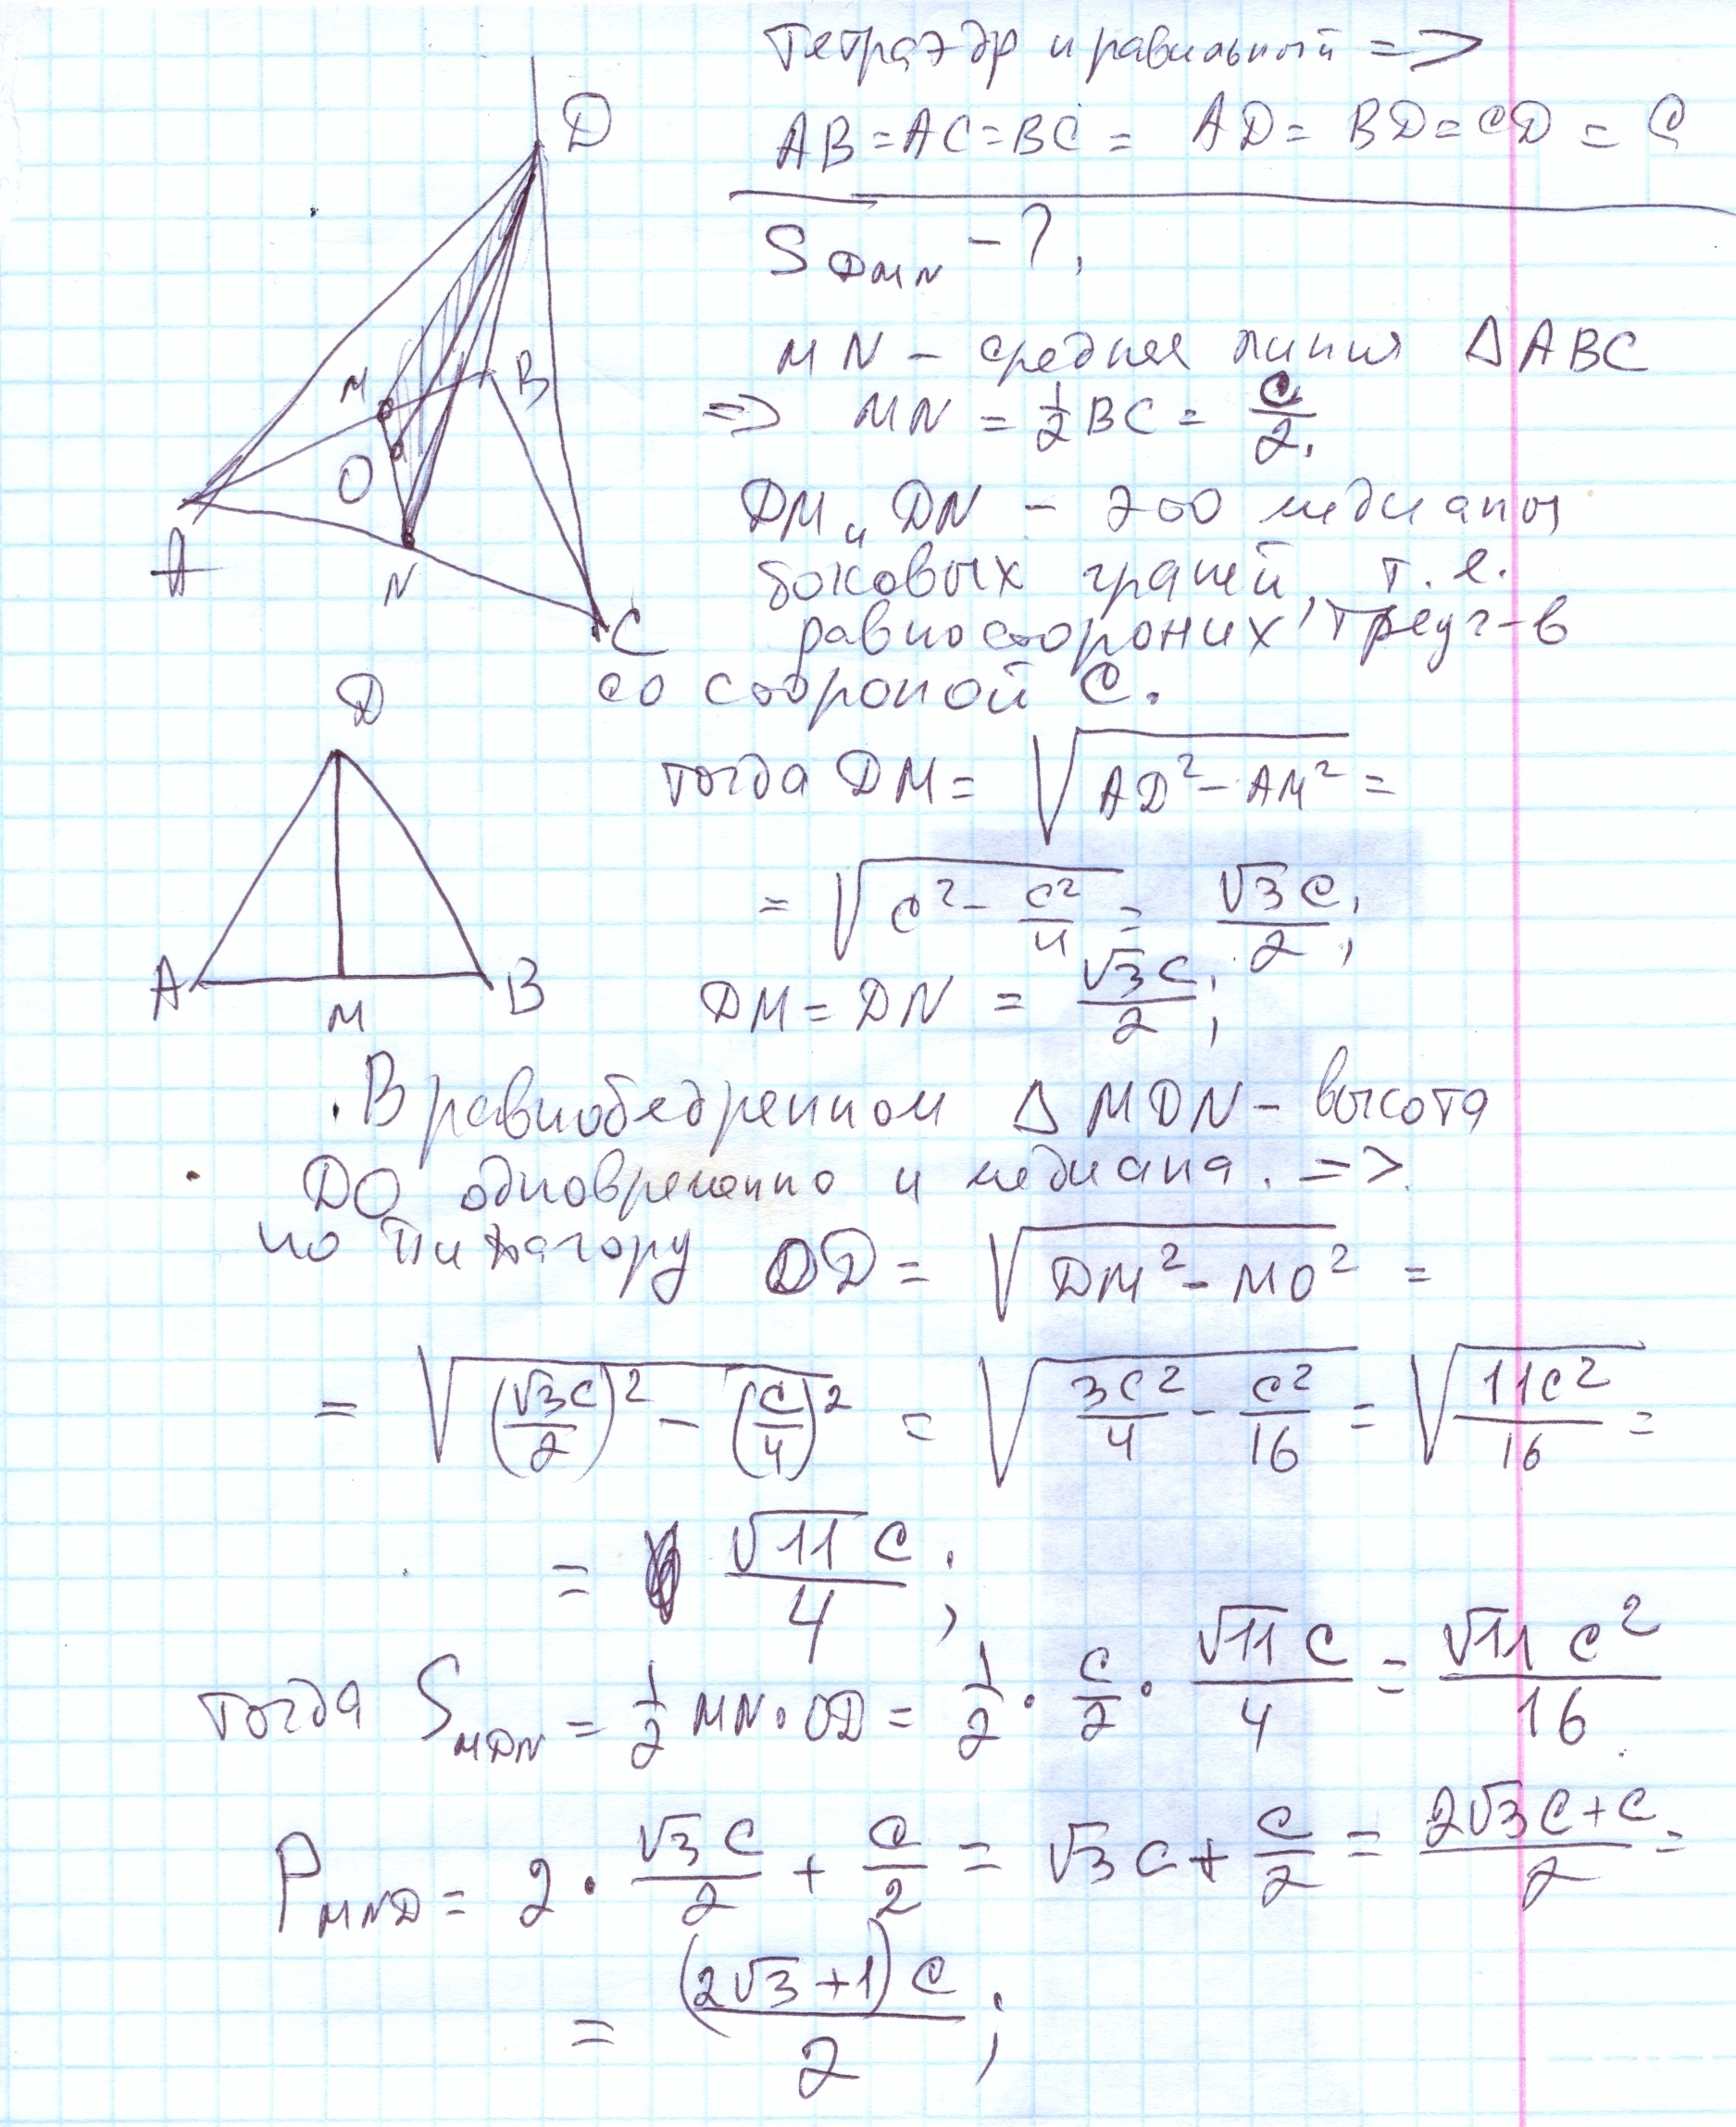 Тетраэдр правильный =>
AB = AC = BC = AD = BD = CD = C
S DMN - ?,
MN - средняя линия ΔABC
=> MN = 1/2 BC = C/2.
DM и DN - это медианы
боковых граней, т.е.
равностороних треуг-в
со стороной C.
тогда DM = √(AD² - AM²) =
= √(C² - C²/4) = √3C/2;
DM = DN = √3C/2;
. В равнобедренном Δ MDN - высота
DO одновременно и медиана. =>
по Пифагору OD = √(DM² - MO²) =
= √((√3C/2)² - (C/4)²) = √(3C²/4 - C²/16) = √(11C²/16) =
= √11C/4;
тогда S MDN = 1/2 MN · OD = 1/2 · C/2 · √11C/4 = √11C²/16
P MND = 2 · √3C/2 + C/2 = √3C + C/2 = (2√3C + C)/2 =
= (2√3 + 1)C/2;
D
M
B
O
A
N
C
D
A
M
B